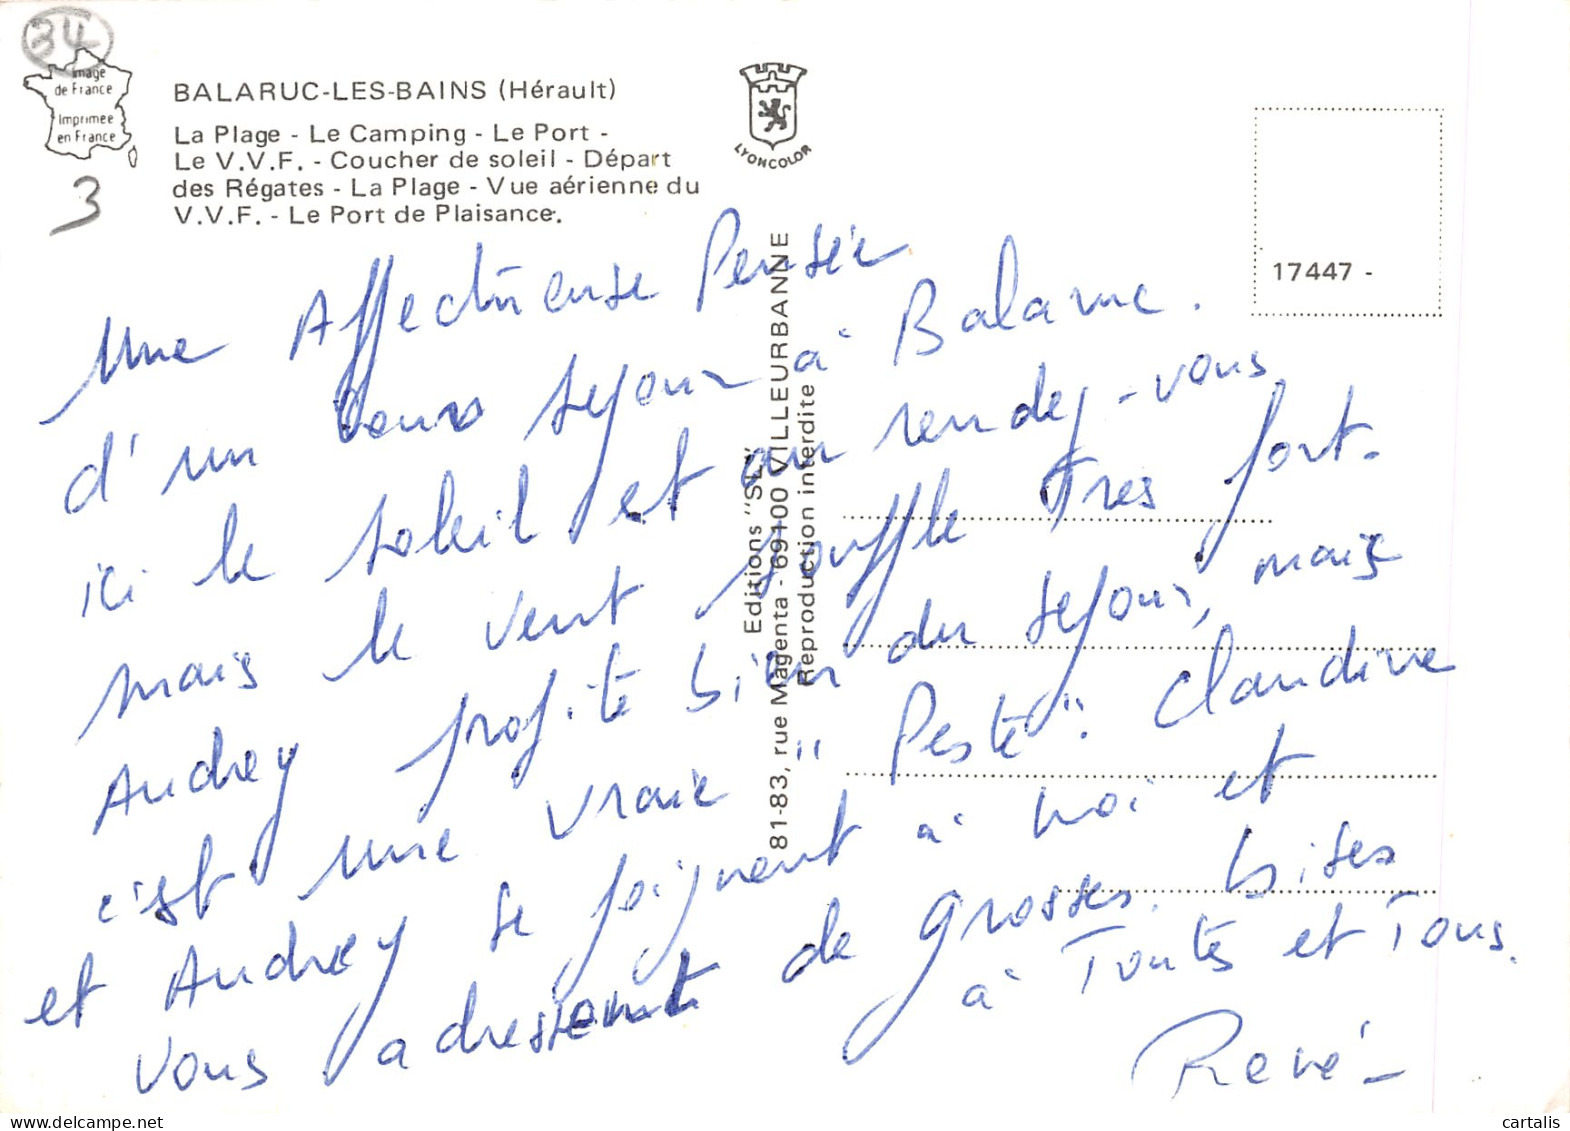 34
Image
de France
Imprimée
en France
3
BALARUC-LES-BAINS (Hérault)
La Plage - Le Camping - Le Port -
Le V.V.F. - Coucher de soleil - Départ
des Régates - La Plage - Vue aérienne du
V.V.F. - Le Port de Plaisance.
LYONCOLOR
17447 -
Editions "SL"
81-83, rue Magenta - 69100 VILLEURBANNE
Reproduction interdite
Une Affectueuse Pensée
d'un séjour à Balaruc.
ici le soleil et au rendez-vous
mais le vent souffle Très fort.
Audrey profite bien du séjour, mais
c'est une vraie "Peste". Claudine
et Audrey se joignent à moi et
vous adressent de grosses bises
à Toutes et Tous.
René
cartalis